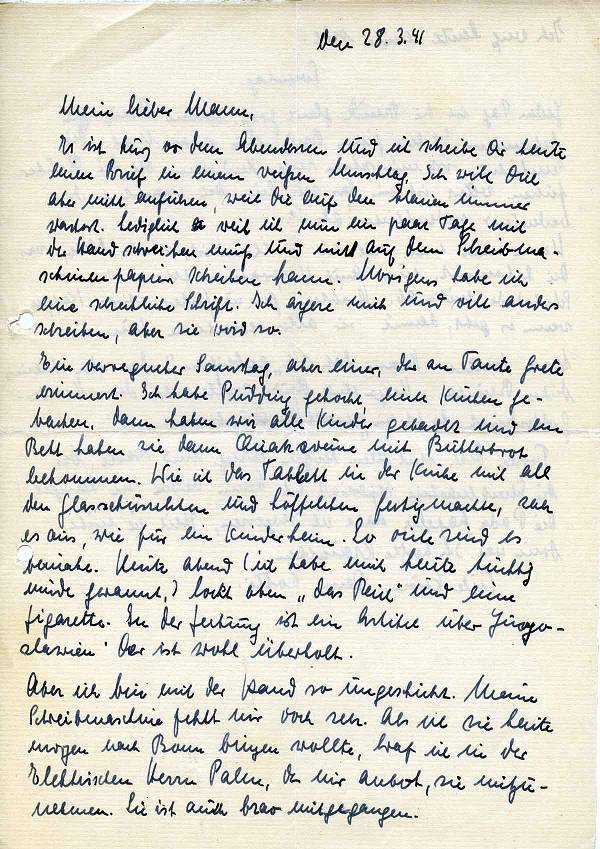 Den 28.3.41
Mein lieber Mann,
Es ist kurz vor dem Abendessen und ich schreibe Dir heute
einen Brief in einem weißen Umschlag. Ich will Dich
aber nicht anführen, weil Du auf den blauen immer
wartest. Lediglich weil ich nun ein paar Tage mit
der Hand schreiben muß und nicht auf dem Schreibma-
schinenpapier schreiben kann. Übrigens habe ich
eine schreckliche Schrift. Ich ärgere mich und will anders
schreiben, aber sie wird so.
Ein verregneter Samstag, aber einer, der an Tante Grete
erinnert. Ich habe Pudding gekocht, einen Kuchen ge-
backen, dann haben wir alle Kinder gebadet und im
Bett haben sie dann mit Butterbrot
bekommen. Wie ich das Tablett in der Küche mit all
den Glasschüsselchen und Löffelchen fertigmachte, sah
es aus, wie für ein Kinderheim. So viele sind es
beinahe. Heute abend (ich habe mich heute tüchtig
müde gerannt,) lockt oben „das Reich" und eine
Zigarette. In der Zeitung ist ein Artikel über Jugo-
slawien. Der ist wohl überholt.
Aber ich bin mit der Hand so ungeschickt. Meine
Schreibmaschine fehlt mir doch sehr. Als ich sie heute
morgen nach Bonn bringen wollte, traf ich in der
Elektrischen Herrn Palm, der mir anbot, sie mitzu-
nehmen. Sie ist auch brav mitgegangen.